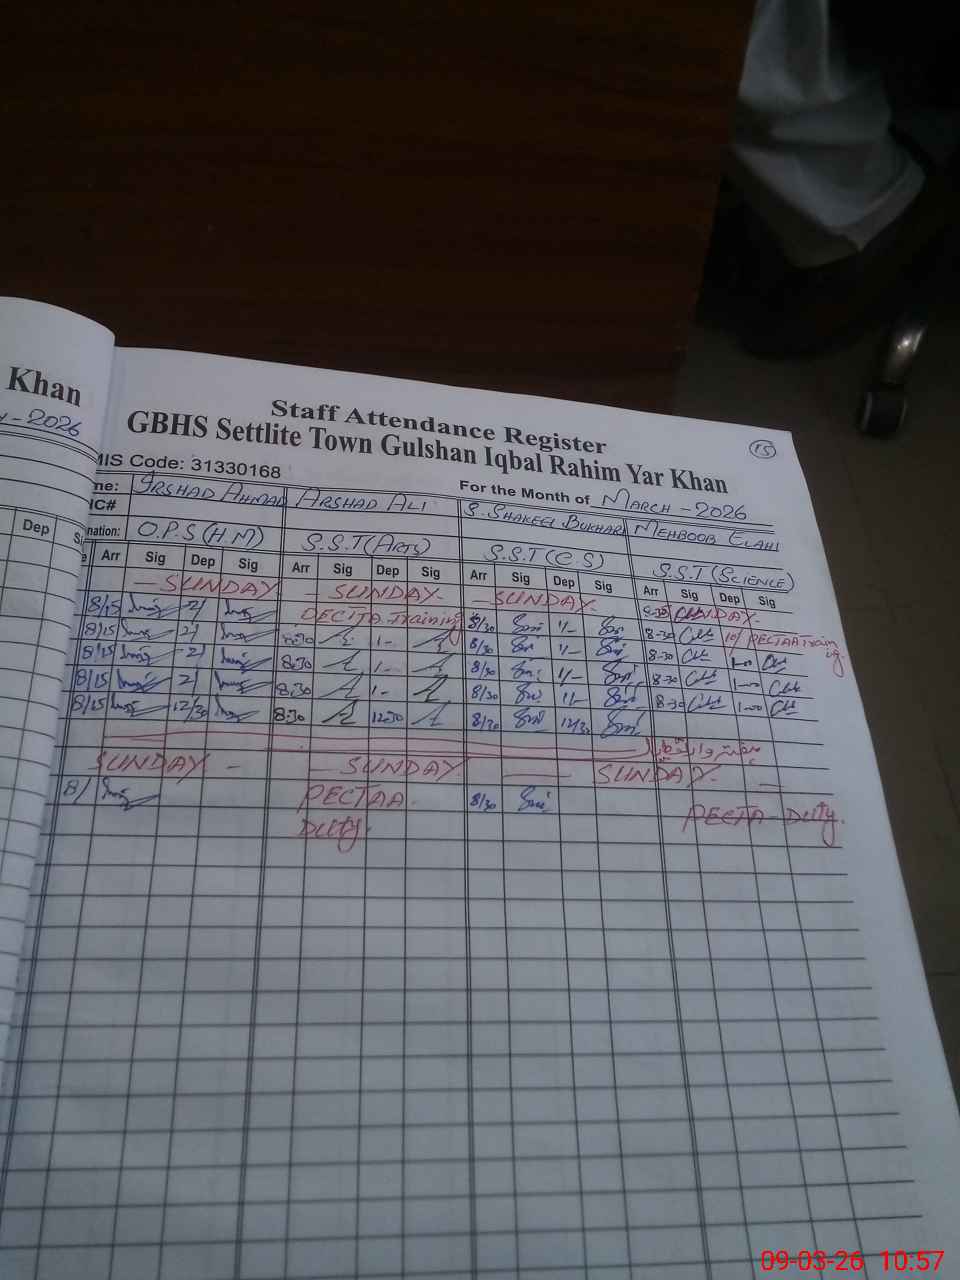 Khan
-2026
Dep
Staff Attendance Register
15
GBHS Settlite Town Gulshan Iqbal Rahim Yar Khan
MIS Code: 31330168
For the Month of MARCH-2026
me: IRSHAD AHMAD ARSHAD ALI S. SHAKEEL BUKHARI MEHBOOB ELAHI
IC#
nation: O.P.S (H.M) S.S.T (ARTS) S.S.T (C.S) S.S.T (SCIENCE)
Arr Sig Dep Sig Arr Sig Dep Sig Arr Sig Dep Sig Arr Sig Dep Sig
- SUNDAY - SUNDAY - SUNDAY - SUNDAY -
8/15 2/ Training 8/30 1/- 8-30 PECTAA Training
8/15 2/ 8:30 1- 8/30 1/- 8-30
8/15 2/ 8:30 1- 8/30 1/- 8-30 1-00
8/15 2/ 8:30 1- 8/30 1/- 8-30 1-00
8/15 12/30 8:30 12:30 8/30 12/30
SUNDAY - - SUNDAY SUNDAY -
8/ PECTAA 8/30 PECTA - Duty.
Duty.
09-03-26 10:57